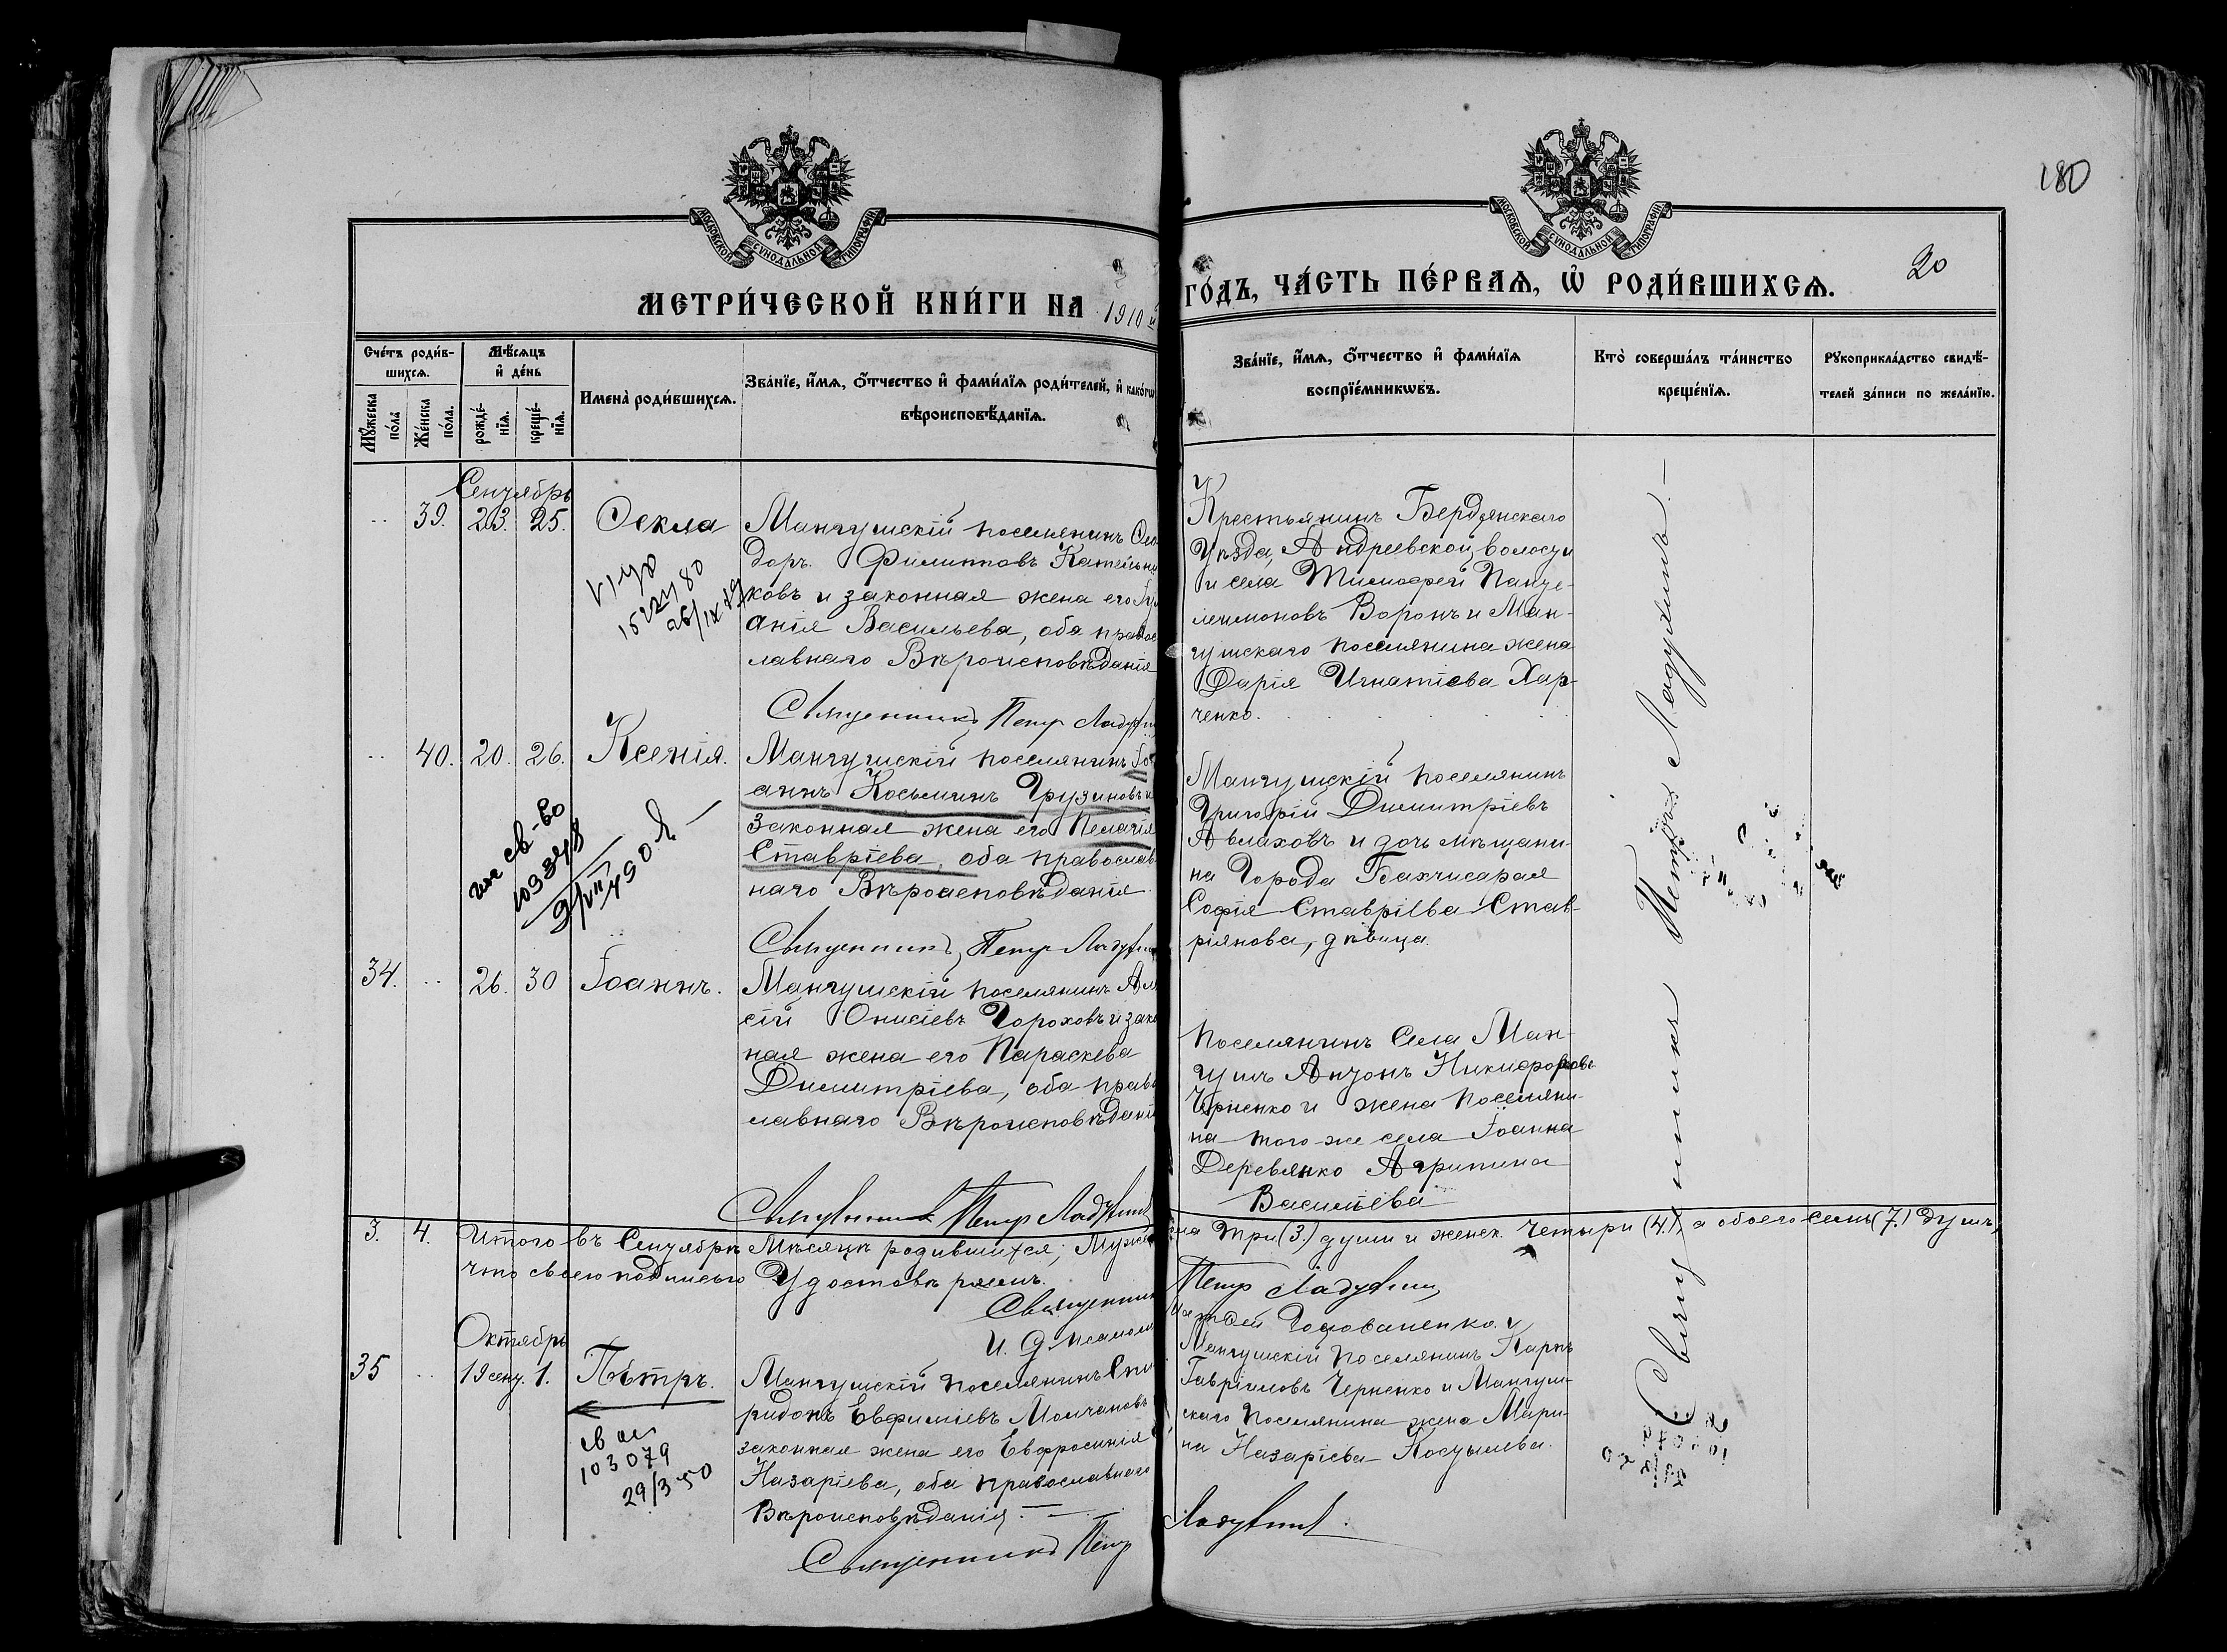 180
МОСКОВСКОЙ СУНОДАЛЬНОЙ ТИПОГРАФІИ
МОСКОВСКОЙ СУНОДАЛЬНОЙ ТИПОГРАФІИ
МЕТРИ́ЧЕСКОЙ КНИ́ГИ НА 1910й
ГО́ДЪ, ЧА́СТЬ ПЕ́РВАѦ, Ѽ РОДИ́ВШИХСѦ.
20
Сче́тъ роди́в-
шихсѧ.
Мꙋ́жеска по́ла
Же́нска по́ла.
Мѣ́сѧцъ и҆ де́нь
рожде́-нїѧ.
креще́-нїѧ.
И҆мена̀ роди́вшихсѧ.
Зва́нїе, и҆́мѧ, ѻ҆́тчество и҆ фами́лїѧ роди́телей, и҆ како́гѡ
вѣроисповѣ́данїѧ.
Зва́нїе, и҆́мѧ, ѻ҆́тчество и҆ фами́лїѧ
воспрїе́мникѡвъ.
Кто̀ соверша́лъ та́инство
креще́нїѧ.
Рꙋкоприкла́дство свидѣ́-
телей за́писи по жела́нїю.
Сентябрь
39. 23. 25. Ѳекла
Мангушскій поселянинъ Ѳео
доръ Филипповъ
ковъ и законная жена его
анія Васильева, оба правос
лавнаго Вѣроисповѣданія
Священникъ Петр
Крестьянинъ Бердянскаго
Уѣзда, Андреевской волости
и села Тимофей Панте-
леимоновъ Воронъ и Ман-
гушскаго поселянина жена
Дарія Игнатіева Хар-
ченко.
40. 20. 26. Ксенія.
Мангушскій поселянинъ Іо
аннъ Косьминъ Грузиновъ и
законная жена его Пелагія
Ставріева, оба православ
наго Вѣроисповѣданія
Священникъ Петр
св-во
103348
450
Мангушскій поселянинъ
Григорій Димитріевъ
Авлаховъ и дочь мѣщани-
на Города Бахчисарая
Софія Ставріева Став-
ріянова, дѣвица.
34. 26. 30 Іоаннъ.
Мангушскій поселянинъ
сій Онисіевъ Гороховъ и зако
ная жена его Параскева
Димитріева, оба право
лавнаго Вѣроисповѣдані
Священникъ Петр
Поселянинъ Села Ман-
гушъ Антонъ Никифоровъ
Черненко и жена поселяни-
на того-же села Іоанна
Деревянко Агрипина
Васильева
3. 4. Итого въ Сентябрѣ Мѣсяцѣ родившихся; Мужес
ка три (3.) души и женск. Четыри (4.), а обоего семь (7.) душъ,
что своею подписью Удостовѣряемъ.
Священник
Петр
И. Д. псалом
Октябрь
35 19 сент. 1. Пётръ.
Мангушскій поселянинъ Спи
ридонъ Евфиміевъ Молчановъ
законная жена его Евфросинія
Назаріева, оба православнаго
Вѣроисповѣданія.
Священникъ Петр
103079
29/3-50
Мангушскій поселянинъ Карпъ
Гавріиловъ Черненко и Мангуш-
скаго поселянина жена Мари-
на Назаріева
Священникъ Петръ